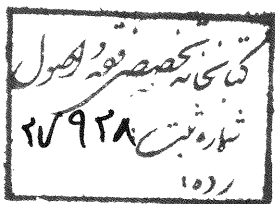 کتابخانه تخصصی فقه و اصول
شماره ثبت: ۲۷۹۳۸
رده: